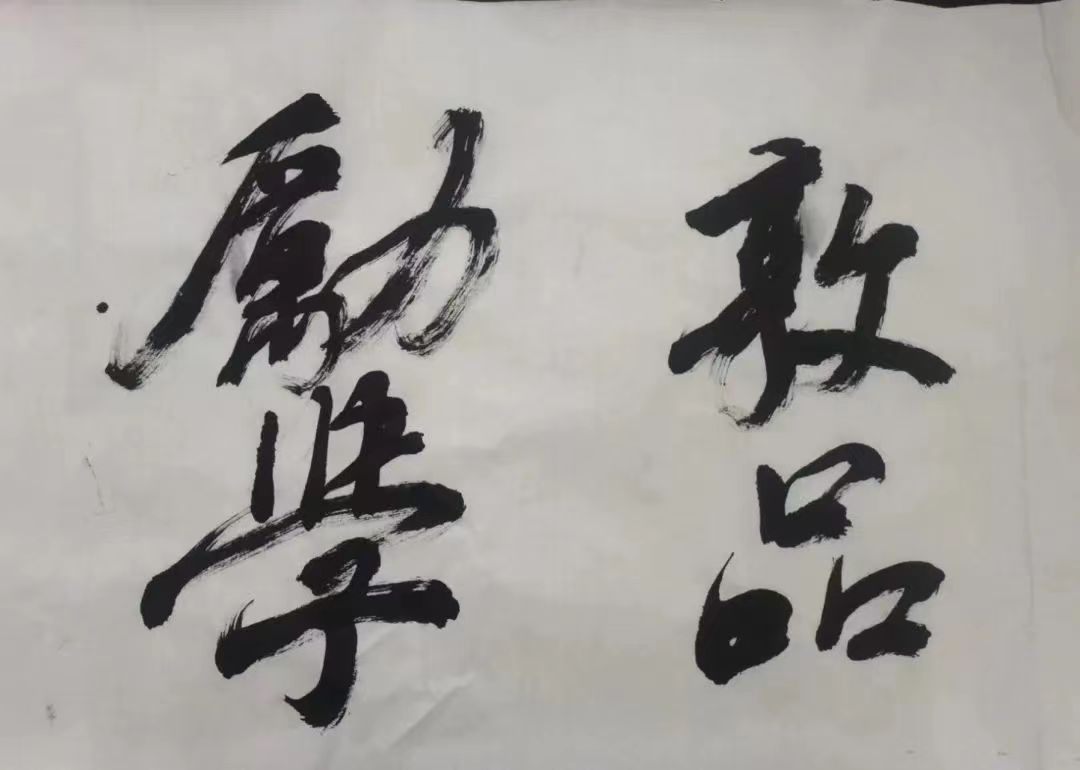 敦品
勵學